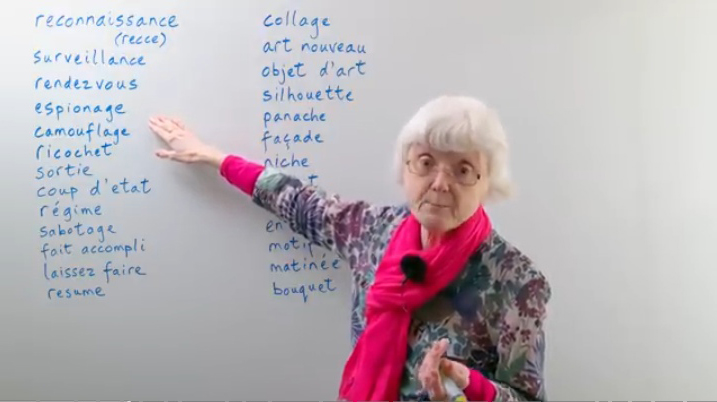 reconnaissance
(recce)
surveillance
rendezvous
espionage
camouflage
ricochet
sortie
coup d'etat
régime
sabotage
fait accompli
laissez faire
resume
collage
art nouveau
objet d'art
silhouette
panache
façade
niche
motif
matinée
bouquet